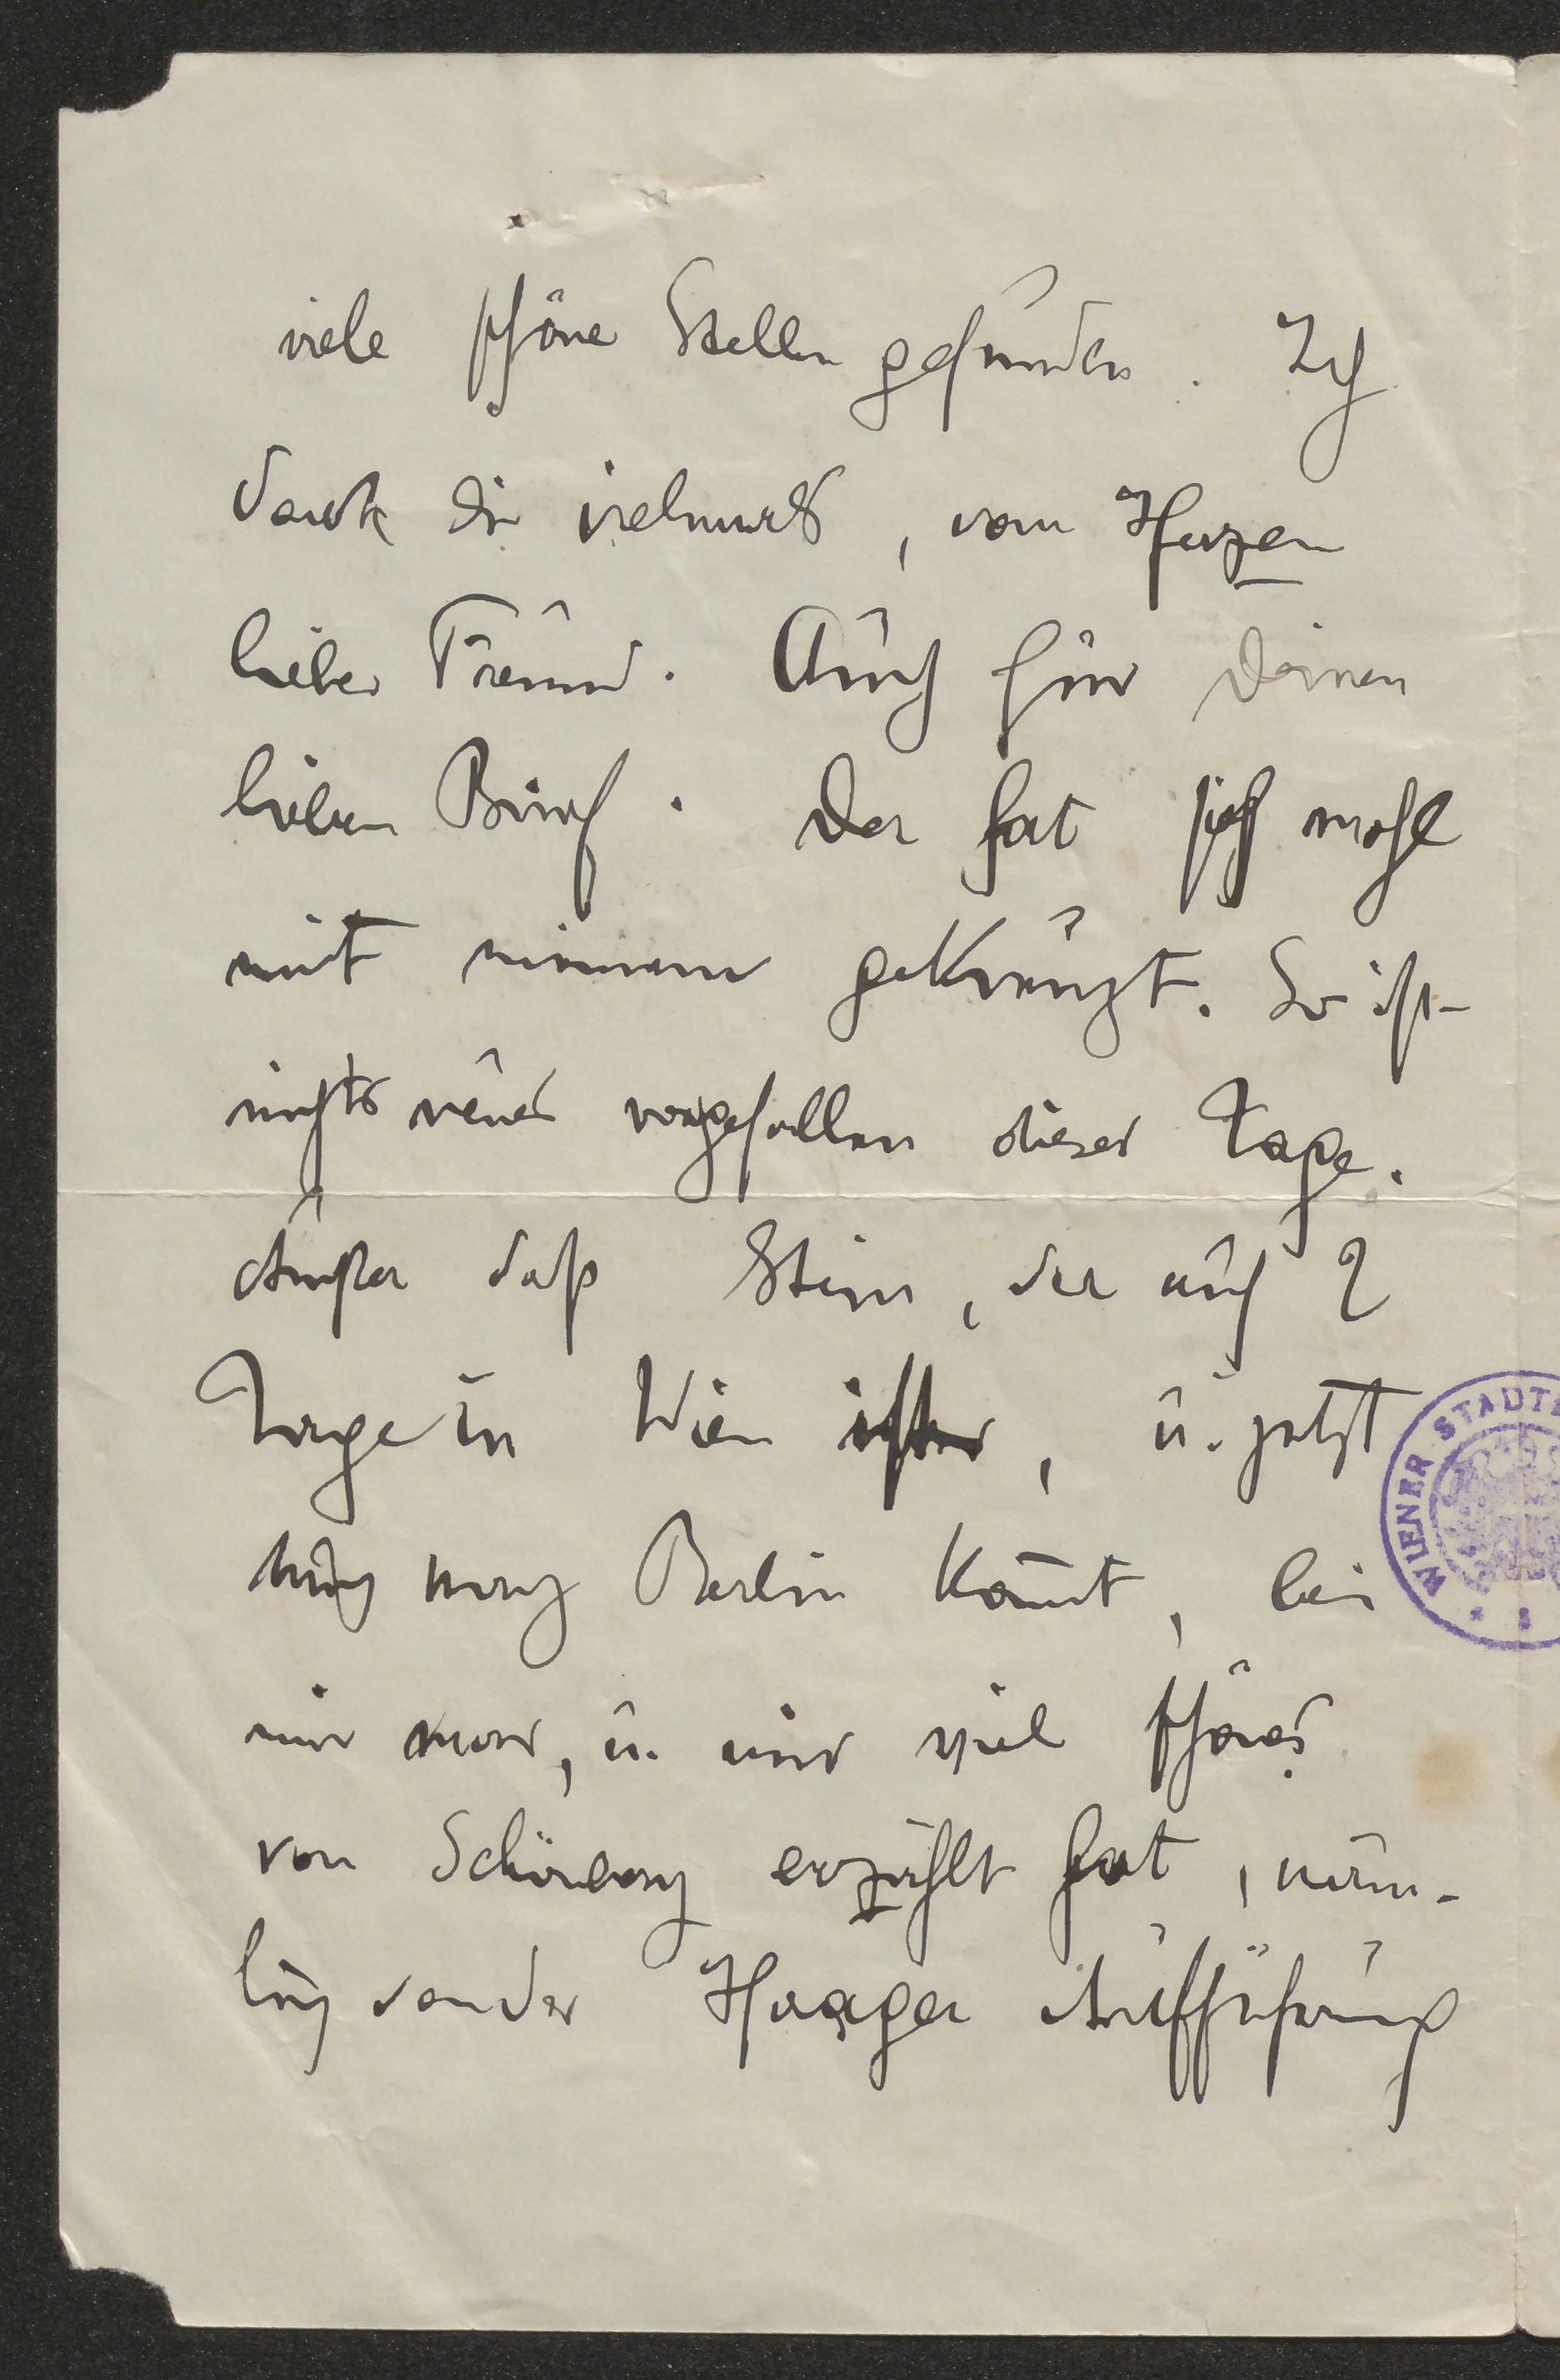 viele schöne Stellen gefunden. Ich
dank dir vielmals, vom Herzen
lieber Freund. Auch für Deinen
lieben Brief. Der hat sich wohl
mit meinem gekreuzt. So ist
nichts neues vorgefallen dieser Tage.
Außer daß Stein, der auf 2
Tage in Wien ist, u. jetzt
nach Berlin kom̅t, bei
mir war, u. mir viel schönes
von Schönberg erzählt hat, näm-
lich von der Haager Aufführung
WIENER STADT